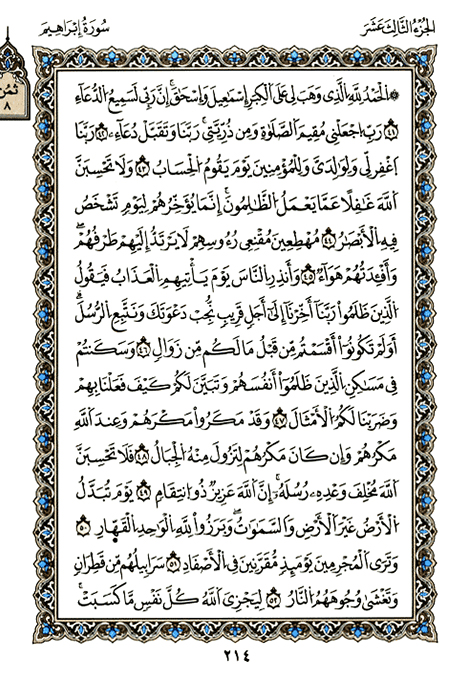 الجزء الثالث عشر
سورة إبراهيم
ثمن
٨
۞ الْحَمْدُ لِلهِ الَّذِي وَهَبَ لِي عَلَى الْكِبَرِ إِسْمَاعِيلَ وَإِسْحَاقَ إِنَّ رَبِّي لَسَمِيعُ الدُّعَاءِ
٤١ رَبِّ اجْعَلْنِي مُقِيمَ الصَّلَوٰةِ وَمِن ذُرِّيَّتِي رَبَّنَا وَتَقَبَّلْ دُعَاءِ ٤٢ رَبَّنَا
اغْفِرْ لِي وَلِوَالِدَيَّ وَلِلْمُؤْمِنِينَ يَوْمَ يَقُومُ الْحِسَابُ ٤٣ وَلَا تَحْسِبَنَّ
اللَّهَ غَافِلًا عَمَّا يَعْمَلُ الظَّالِمُونَ إِنَّمَا يُؤَخِّرُهُمْ لِيَوْمٍ تَشْخَصُ
فِيهِ الْأَبْصَارُ ٤٤ مُهْطِعِينَ مُقْنِعِي رُءُوسِهِمْ لَا يَرْتَدُّ إِلَيْهِمْ طَرْفُهُمْ
وَأَفْئِدَتُهُمْ هَوَاءٌ ٤٥ وَأَنذِرِ النَّاسَ يَوْمَ يَأْتِيهِمُ الْعَذَابُ فَيَقُولُ
الَّذِينَ ظَلَمُوا رَبَّنَا أَخِّرْنَا إِلَىٰ أَجَلٍ قَرِيبٍ نُّجِبْ دَعْوَتَكَ وَنَتَّبِعِ الرُّسُلَ
أَوَلَمْ تَكُونُوا أَقْسَمْتُم مِّن قَبْلُ مَا لَكُم مِّن زَوَالٍ ٤٦ وَسَكَنتُمْ
فِي مَسَاكِنِ الَّذِينَ ظَلَمُوا أَنفُسَهُمْ وَتَبَيَّنَ لَكُمْ كَيْفَ فَعَلْنَا بِهِمْ
وَضَرَبْنَا لَكُمُ الْأَمْثَالَ ٤٧ وَقَدْ مَكَرُوا مَكْرَهُمْ وَعِندَ اللَّهِ
مَكْرُهُمْ وَإِن كَانَ مَكْرُهُمْ لِتَزُولَ مِنْهُ الْجِبَالُ ٤٨ فَلَا تَحْسِبَنَّ
اللَّهَ مُخْلِفَ وَعْدِهِ رُسُلَهُ إِنَّ اللَّهَ عَزِيزٌ ذُو انتِقَامٍ ٤٩ يَوْمَ تُبَدَّلُ
الْأَرْضُ غَيْرَ الْأَرْضِ وَالسَّمَٰوَٰتُ وَبَرَزُوا لِلهِ الْوَاحِدِ الْقَهَّارِ ٥٠
وَتَرَى الْمُجْرِمِينَ يَوْمَئِذٍ مُّقَرَّنِينَ فِي الْأَصْفَادِ ٥١ سَرَابِيلُهُم مِّن قَطِرَانٍ
وَتَغْشَىٰ وُجُوهَهُمُ النَّارُ ٥٢ لِيَجْزِيَ اللَّهُ كُلَّ نَفْسٍ مَّا كَسَبَتْ
٢١٤